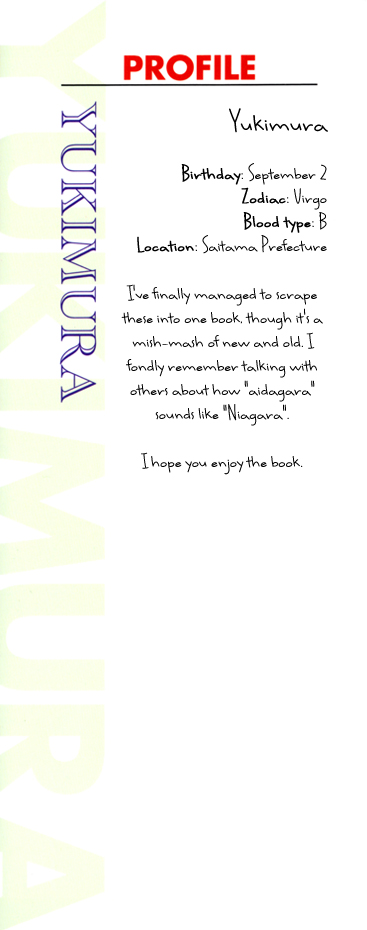 PROFILE
YUKIMURA
YUKIMURA
Yukimura
Birthday: September 2
Zodiac: Virgo
Blood type: B
Location: Saitama Prefecture
I've finally managed to scrape
these into one book, though it's a
mish-mash of new and old. I
fondly remember talking with
others about how "aidagara"
sounds like "Niagara".
I hope you enjoy the book.